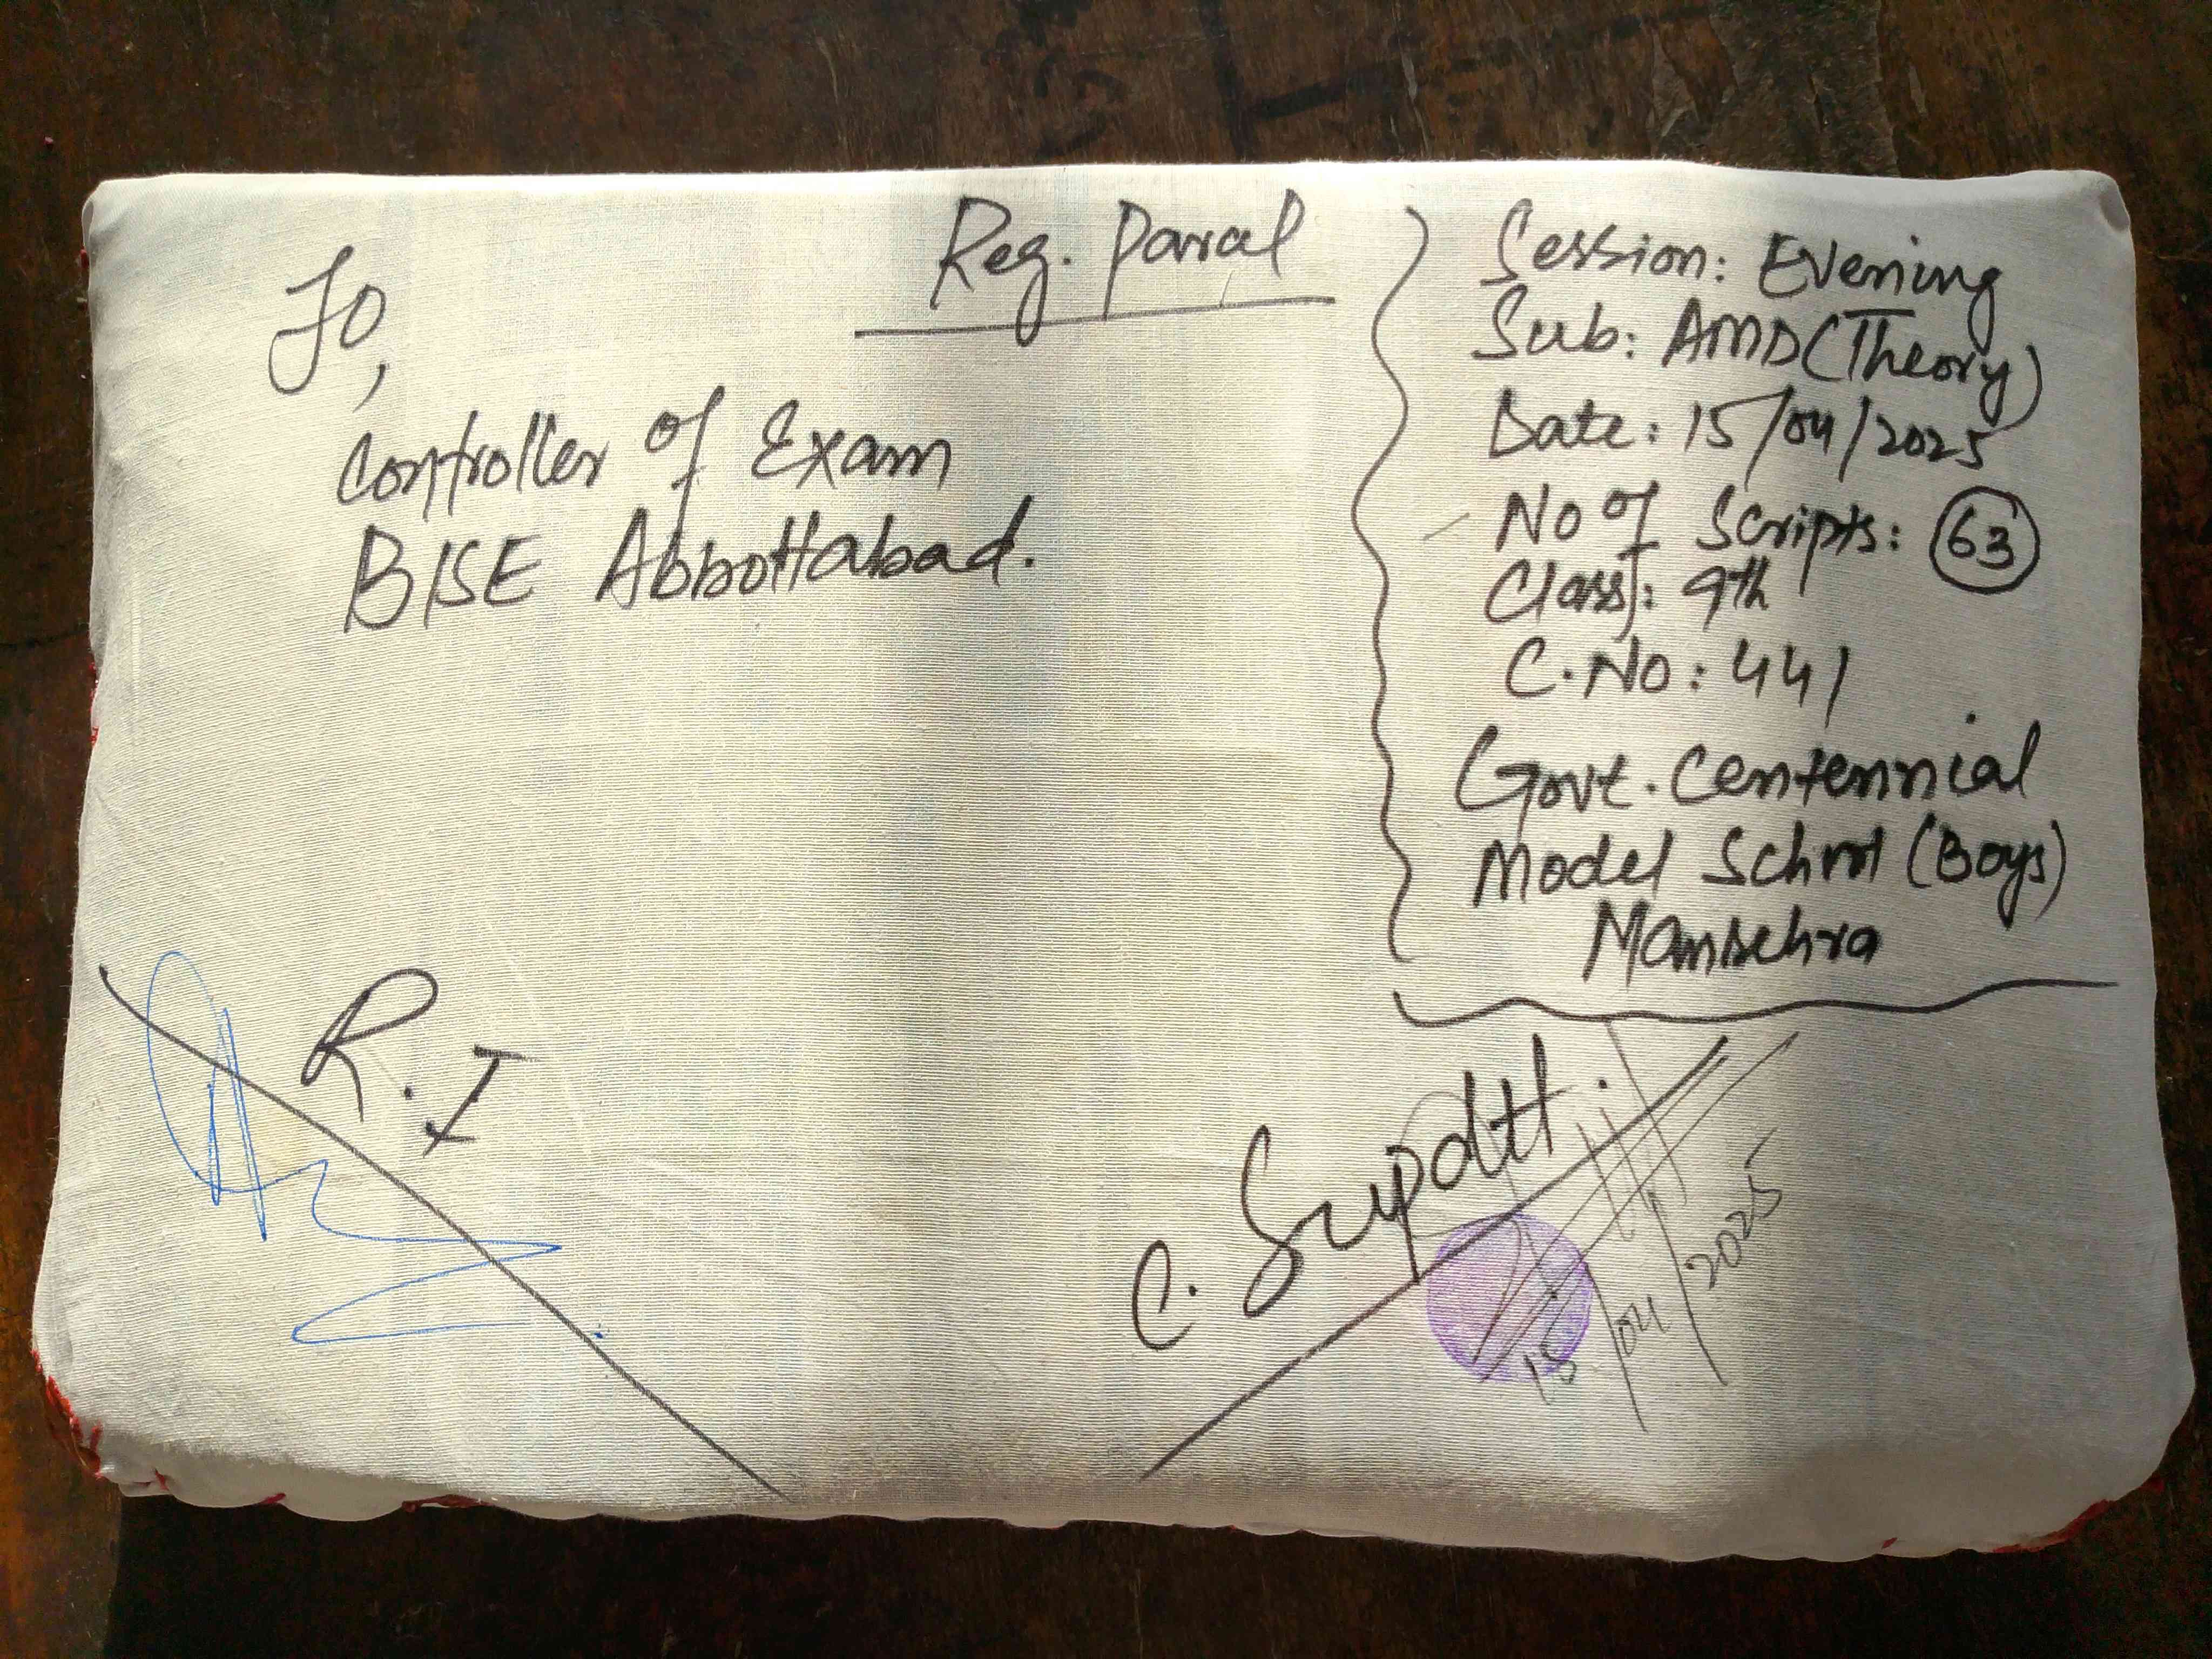 Reg. Parcal
To,
Controller of Exam
BISE Abbottabad.
Session: Evening
Sub: AMD (Theory)
Date: 15/04/2025
No of Scripts: 63
Class: 9th
C.No: 441
Govt. Centennial
Model School (Boys)
Mansehra
R.I
C. Supdtt.
15/04/2025